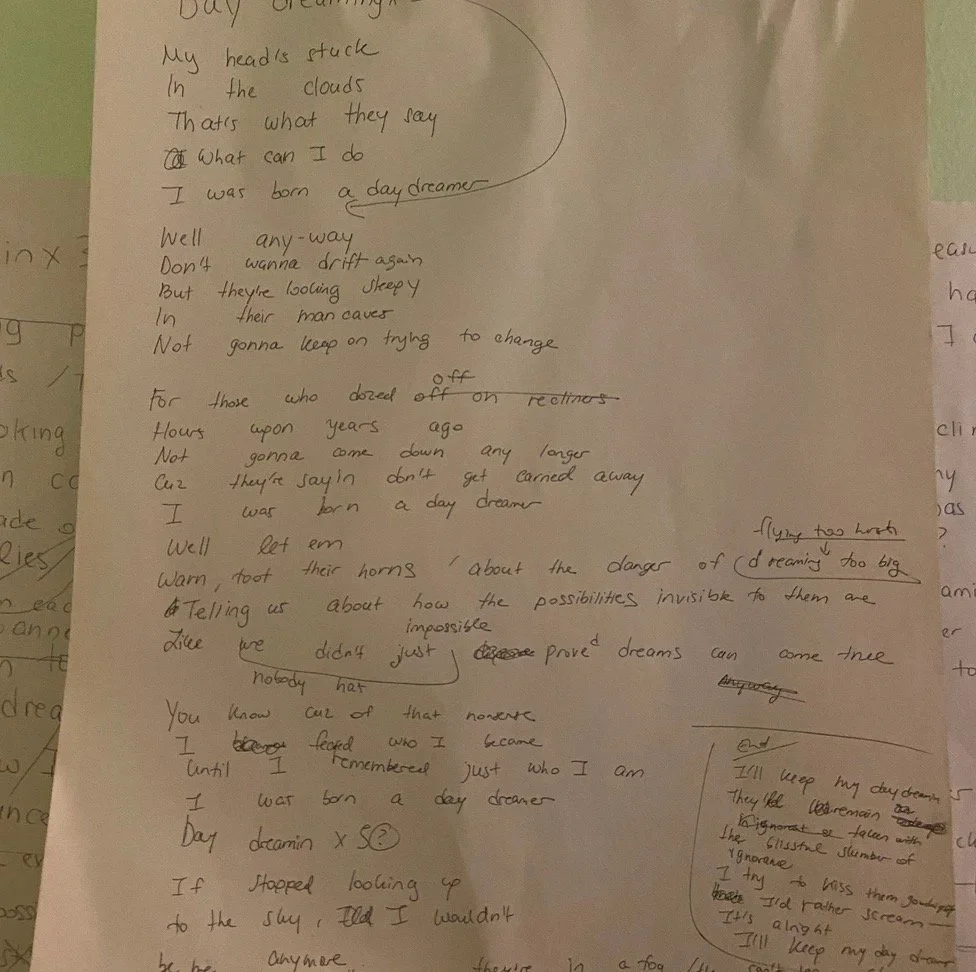 Day dreaming
My head's stuck
In the clouds
That's what they say
What can I do
I was born a daydreamer
Well any-way
Don't wanna drift again
But they're looking sleepy
In their man caves
Not gonna keep on trying to change
off
For those who dozed off on recliners
Hours upon years ago
Not gonna come down any longer
Cuz they're sayin don't get carried away
I was born a day dreamer
Well let em
flying too
Warn, toot their horns about the danger of (dreaming too big
Telling us about how the possibilities invisible to them are
impossible
Like we didn't just proved dreams can come true
nobody has
Anyway
You know cuz of that nonsense
I feared who I became
Until I remembered just who I am
I was born a day dreamer
Day dreamin x 5?
If stopped looking up
to the sky, I wouldn't
be anymore they're in a fog
End
I'll keep my daydreamin
They'll remain
taken with
the blissful slumber of
ignorance
I try to kiss them
I'd rather scream
It's alright
I'll keep my day
in x 3
g p
s /
oking
n co
ade o
lies
n eac
anne
n to
drea
w/
nce
er
poss
easu
ha
I
clin
ny
as
?
ami
er
to